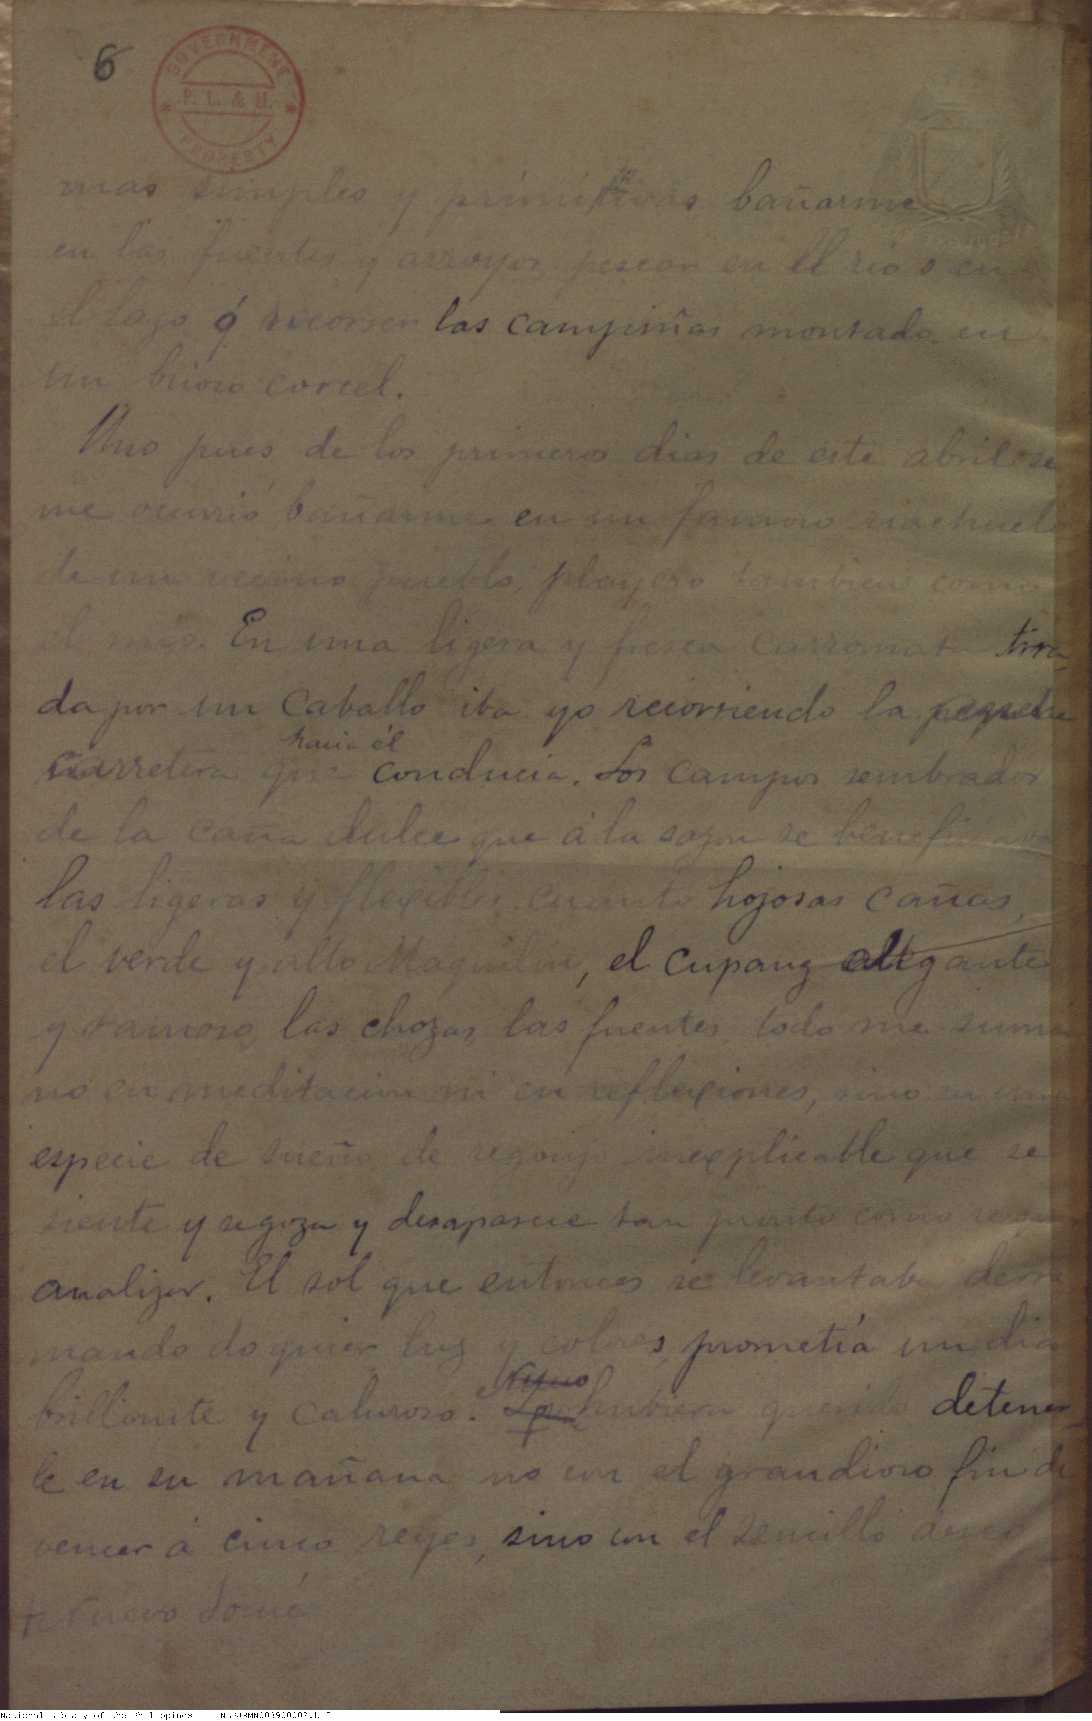 6
GOVERNMENT
P. L. & M.
PROPERTY
mas simples y primitivas bañarme
en las fuentes y arroyos, pescar en el rio o en
el lago ó recorrer las campiñas montado en
un brioso corcel.
Uno pues de los primeros dias de este abril se
me ocurrió bañarme en un famoso riachuelo
de un vecino pueblo, playero tambien como
el mio. En una ligera y fresca carromata tira
da por un caballo iba yo recorriendo la
hacia él
carretera que conducia. Los campos sembrados
de la caña dulce que á la sazon se
las ligeras y flexibles cuanto hojosas cañas,
el verde y alto, el cupang gigante
y ramoso, las chozas, las fuentes, todo me
no en meditacion ni en reflexiones, sino en una
especie de sueño de regocijo inexplicable que se
siente y se goza y desaparece tan pronto como
analizar. El sol que entonces se levantaba derra
mando do quier luz y colores, prometía un dia
brillante y caluroso. hubiera querido detener
le en su mañana no con el grandioso fin de
vencer á cinco reyes, sino con el sencillo deseo
nuevo Josué
National Library of the Philippines